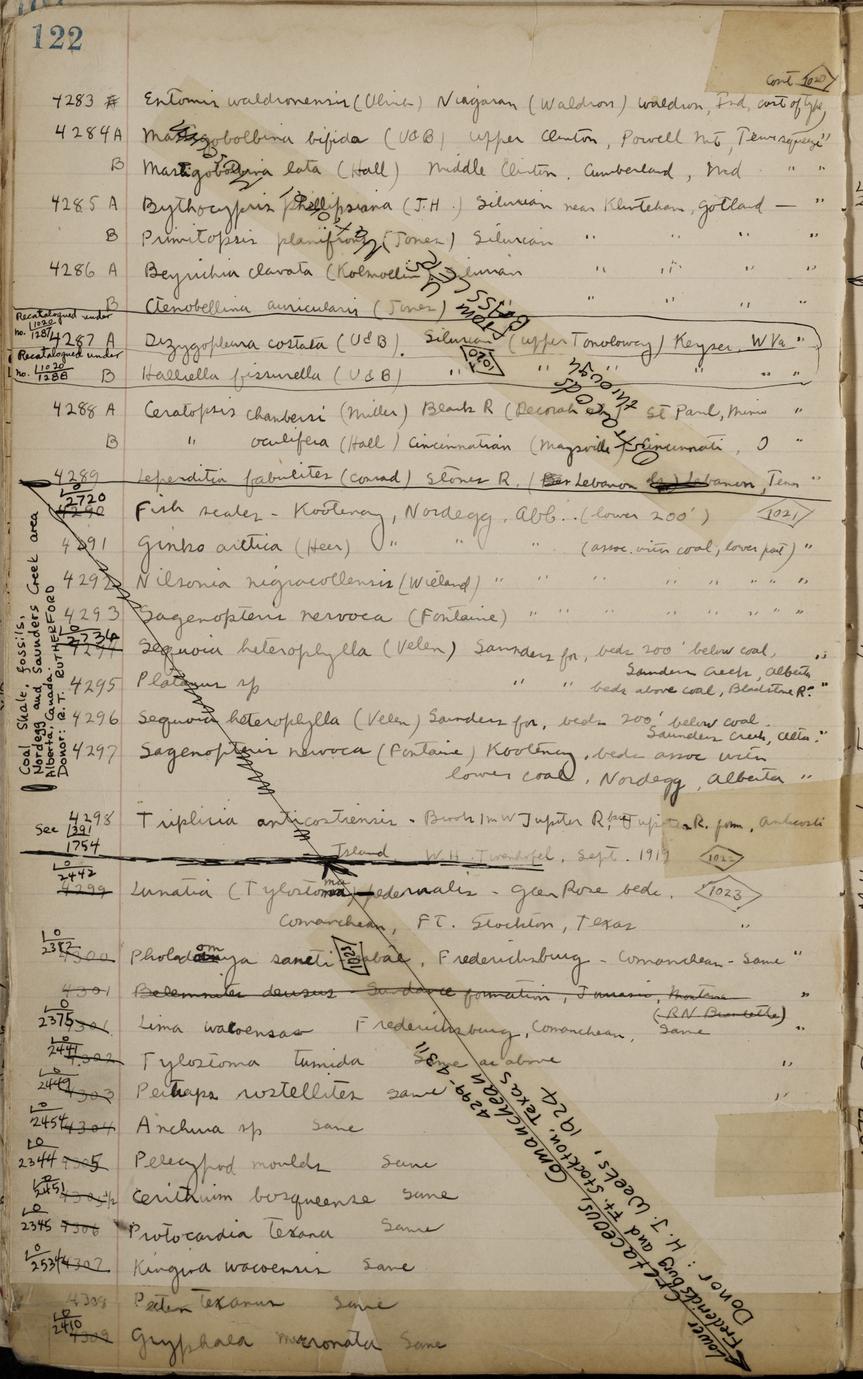 122
Cont. 1020
4283 Entomis waldronensis (Ulrich) Niagaran (Waldron) Waldron, Ind, cast of type,
4284 A Mastigobolbina bifida (U&B) upper Clinton, Powell Mt, Tenn squeeze "
B Mastigobolbina lata (Hall) Middle Clinton, Cumberland, Md " "
4285 A Bythocypris phillipsiana (J.H.) Silurian near Klinteham, Gotland — "
B Primitopsis planifrons (Jones) Silurian " " " "
4286 A Beyrichia clavata (Kolmodin) Silurian " " " "
B Ctenobellina auricularis (Jones) " " " "
Recatalogued under no. L1020 1287
4287 A Dizygopleura costata (U&B). Silurian (upper Tonoloway) Keyser, W Va "
Recatalogued under no. L1020 1288
B Halliella fissurella (U&B) " " " " " "
1020
4288 A Ceratopsis chambersi (Miller) Black R (Decorah) St Paul, Minn "
B " oculifera (Hall) Cincinnatian (Maysville) Cincinnati, O "
4289 Leperditia fabulites (Conrad) Stones R, (Lebanon) Lebanon, Tenn "
LO 2720 4290 Fish scales - Kootenay, Nordegg, Alb... (lower 200') 1021
4291 Ginko arctica (Heer) " " " (assoc. with coal, lower part) "
4292 Nilsonia nigracollensis (Wieland) " " " " " " " "
4293 Sagenopteris nervoca (Fontaine) " " " " " " " "
LO 2734 4294 Sequoia heterophylla (Velen) Saunders for, beds 200' below coal,
Saunders Creek, Alberta "
4295 Platanus sp " " beds above coal, Blackstone R? "
4296 Sequoia heterophylla (Velen) Saunders for, beds 200' below coal.
Saunders Creek, Alta. "
4297 Sagenopteris nervoca (Fontaine) Kootenay, beds assoc with
lower coal, Nordegg, Alberta "
Coal Shale, fossils,
Nordegg and Saunders Creek area
Alberta, Canada.
Donor: R.T. RUTHERFORD
4298 Triplicia anticostiensis - Brook 1m W Jupiter R, Jupiter R. form, Anticosti
See 1391 1754
Island W.H. Twenhofel, Sept. 1919 1022
LO 2442 4299 Lunatia (Tylostoma) pedernalis - Glen Rose beds. 1023
Comanchean, FT. Stockton, Texas "
LO 2382 4300 Pholadomya sancti-sabae, Fredericksburg - Comanchean - Same "
1023
4301 Belemnites densus - Sundance formation, Jurassic, Montana
LO 2375 4301 Lima wacoensas Fredericksburg, Comanchean, Same "
LO 2441 4302 Tylostoma tumida Same as above "
LO 2449 4303 Perhaps rostellites same "
LO 2454 4304 Anchura sp Same
LO 2344 4305 Pelecypod moulds Same
LO 2451 4305½ Cerithium bosqueense Same
LO 2345 4306 Protocardia texana Same
LO 2534 4307 Kingina wacoensis Same
4308 Pecten Texanus Same
LO 2410 4309 Gryphaea mucronata Same
4299-4311
Lower Cretaceous, Comanchean
Fredericksburg and Ft. Stockton, Texas
Donor: H.J. Weeks, 1924